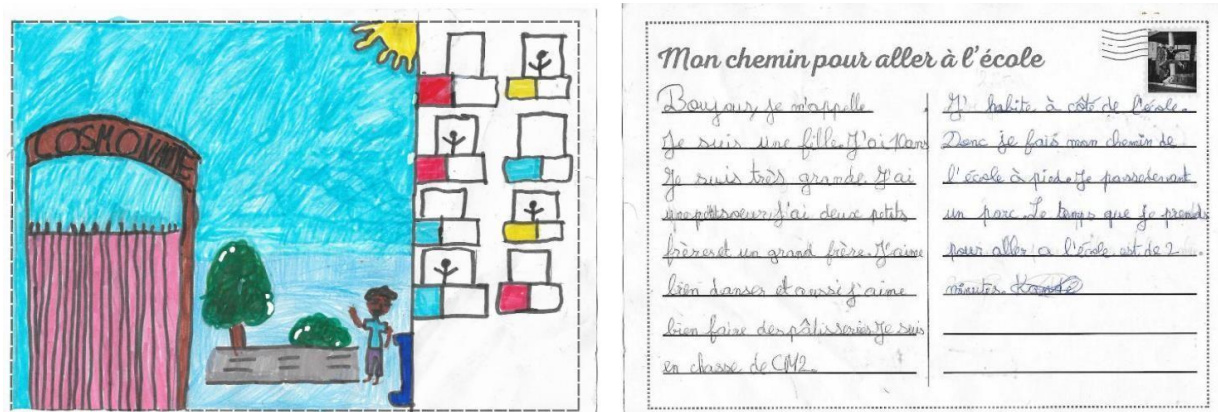 COSMONAUTE
Mon chemin pour aller à l'école
Boujour, je m'appelle
Je suis une fille. J'ai 10ans
Je suis très grande. J'ai
une petite soeur, j'ai deux petits
frères et un grand frère. J'aime
bien danser et aussi j'aime
bien faire des pâtisseries. Je suis
en classe de CM2.
J' habite à côté de l'école.
Donc je fais mon chemin de
l'école à pied. Je passe devant
un parc. Le temps que je prends
pour aller a l'école est de 2
minutes.